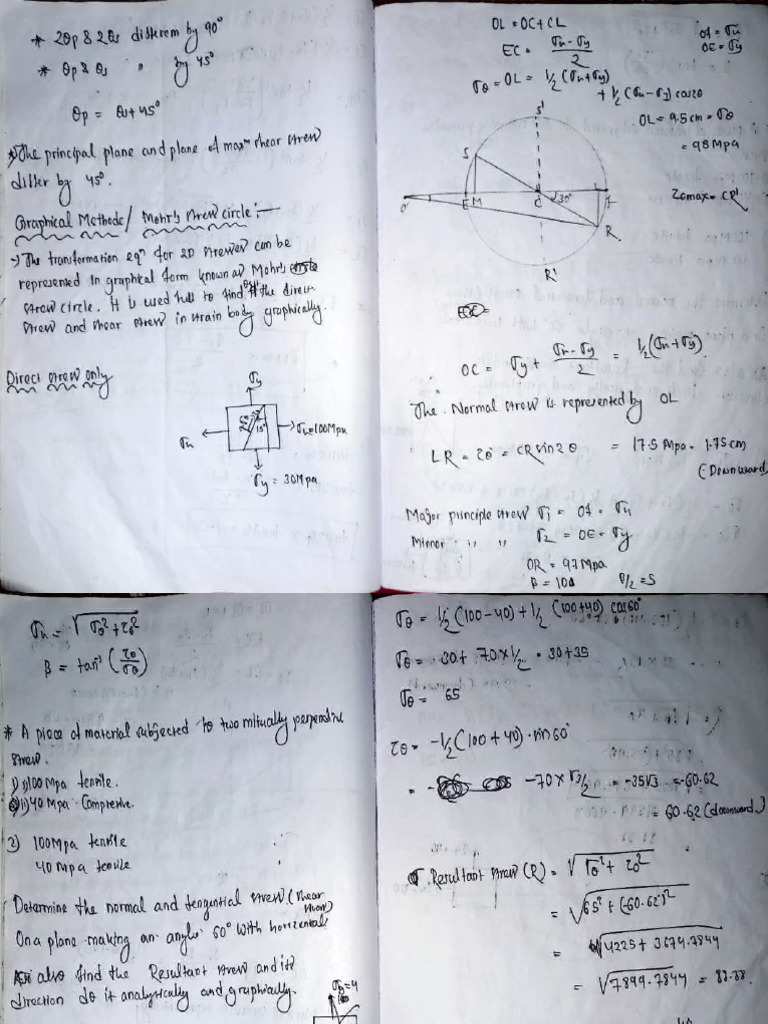 * 2θp & 2θs differem by 90°
* θp & θs " by 45°
θp = θs + 45°
The principal plane and plane of maxm shear stress
differ by 45°.
Graphical Methods / Mohr's stress circle:-
→ The transformation eqn for 2D stresses can be
represented in graphical form known as Mohr's
stress circle. It is used to find the direct
stress and shear stress in strain body graphically.
Direct stress only
σy
σx
σx = 100 Mpa
15°
σy = 30 Mpa
OL = OC + CL
EC = (σx - σy)/2
OA = σx
OE = σy
σθ = OL = 1/2 (σx + σy) + 1/2 (σx - σy) cos2θ
OL = 9.5 cm = σθ
= 98 Mpa
τmax = CR'
S'
S
O
E
M
C
30°
L
A
R
R'
OC = σy + (σx - σy)/2 = 1/2 (σx + σy)
The Normal stress is represented by OL
LR = τθ = CR sin2θ = 17.5 Mpa = 1.75 cm
(Downward)
Major principle stress σ1 = OA = σx
Minor " " σ2 = OE = σy
OR = 97 Mpa
β = 10° β/2 = 5
σr = √(σθ² + τθ²)
β = tan⁻¹ (τθ/σθ)
* A piece of material subjected to two mitually perpendive
stress.
1) i) 100 Mpa tensile.
ii) 40 Mpa Compresive.
2) 100 Mpa tensile
40 Mpa tensile
Determine the normal and tengential stress (shear
stress)
On a plane making an angle 60° with horizontal
also find the Resultant stress and its
direction do it analytically and graphically.
σy = 4
σθ = 1/2 (100 - 40) + 1/2 (100 + 40) cos60°
σθ = 30 + 70 × 1/2 = 30 + 35
σθ = 65
τθ = -1/2 (100 + 40) · sin60°
= -70 × √3/2 = -35√3 = -60.62
= 60.62 (downward.)
Resultant stress (R) = √(σθ² + τθ²)
= √(65² + (-60.62)²)
= √(4225 + 3674.7844)
= √7899.7844 = 88.88.